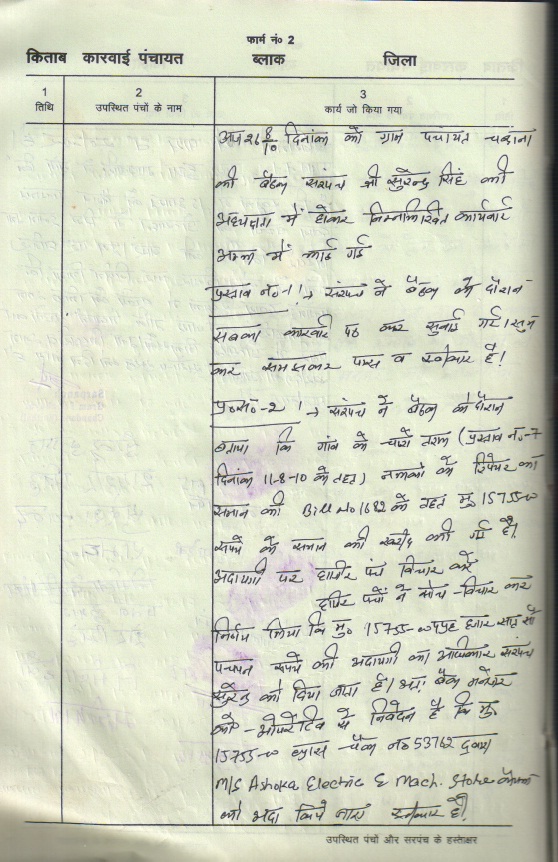 फार्म नं० 2
किताब कारवाई पंचायत ब्लाक जिला
1 2 3
तिथि उपस्थित पंचों के नाम कार्य जो किया गया
आज 26 8/10 दिनांक को ग्राम पंचायत
की बैठक सरपंच श्री सुरेन्द्र सिंह की
अध्यक्षता में होकर निम्नलिखित कार्यवाई
अमल में लाई गई
प्रस्ताव नं०-1 → सरपंच ने बैठक के दौरान
सबका कारवाई पढ़ कर सुनाई गई। सुन
कर समझकर पास व स्वीकार है।
प्र०नं०-2 → सरपंच ने बैठक के दौरान
बताया कि गांव के चारों तरफ (प्रस्ताव नं०-7
दिनांक 11-8-10 के तहत) नलकों के रिपेयर का
समान की Bill No 1682 के तहत मु० 15755-00
रूपये के समान की खरीद की गई है।
अदायगी पर हाजिर पंच विचार करें
हाजिर पंचों ने सोच-विचार कर
निर्णय लिया कि मु० 15755-00 पन्द्रह हजार सात सौ
पचपन रूपये की अदायगी का अधिकार सरपंच
सुरेन्द्र को दिया जाता है। अतः बैंक मैनेजर
को-ओपरेटिव से निवेदन है कि मु०
15755-00 चैक न० 53762 द्वारा
M/S Ashoka Electric & Mach. Store
को अदा किये जायें स्वीकार है।
उपस्थित पंचों और सरपंच के हस्ताक्षर